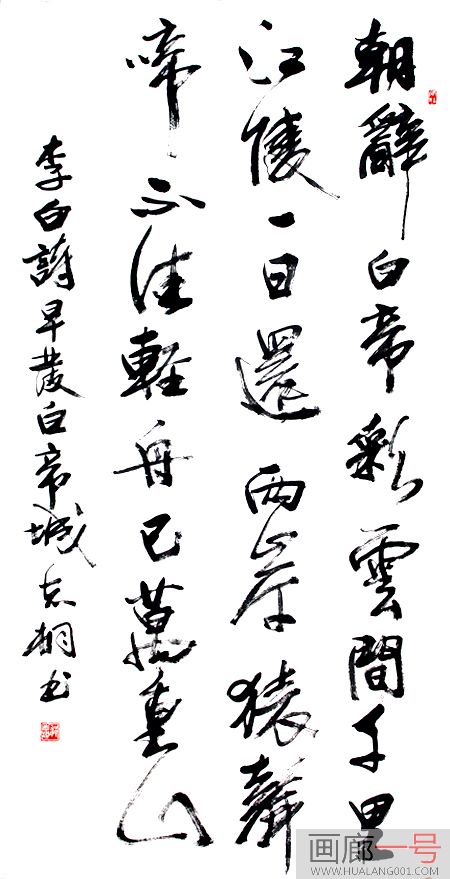 朝辭白帝彩雲間千里
江陵一日還兩岸猿聲
啼不住軽舟已萬重山
李白詩早發白帝城志桐书
画廊一号
WWW.HUALANG001.COM